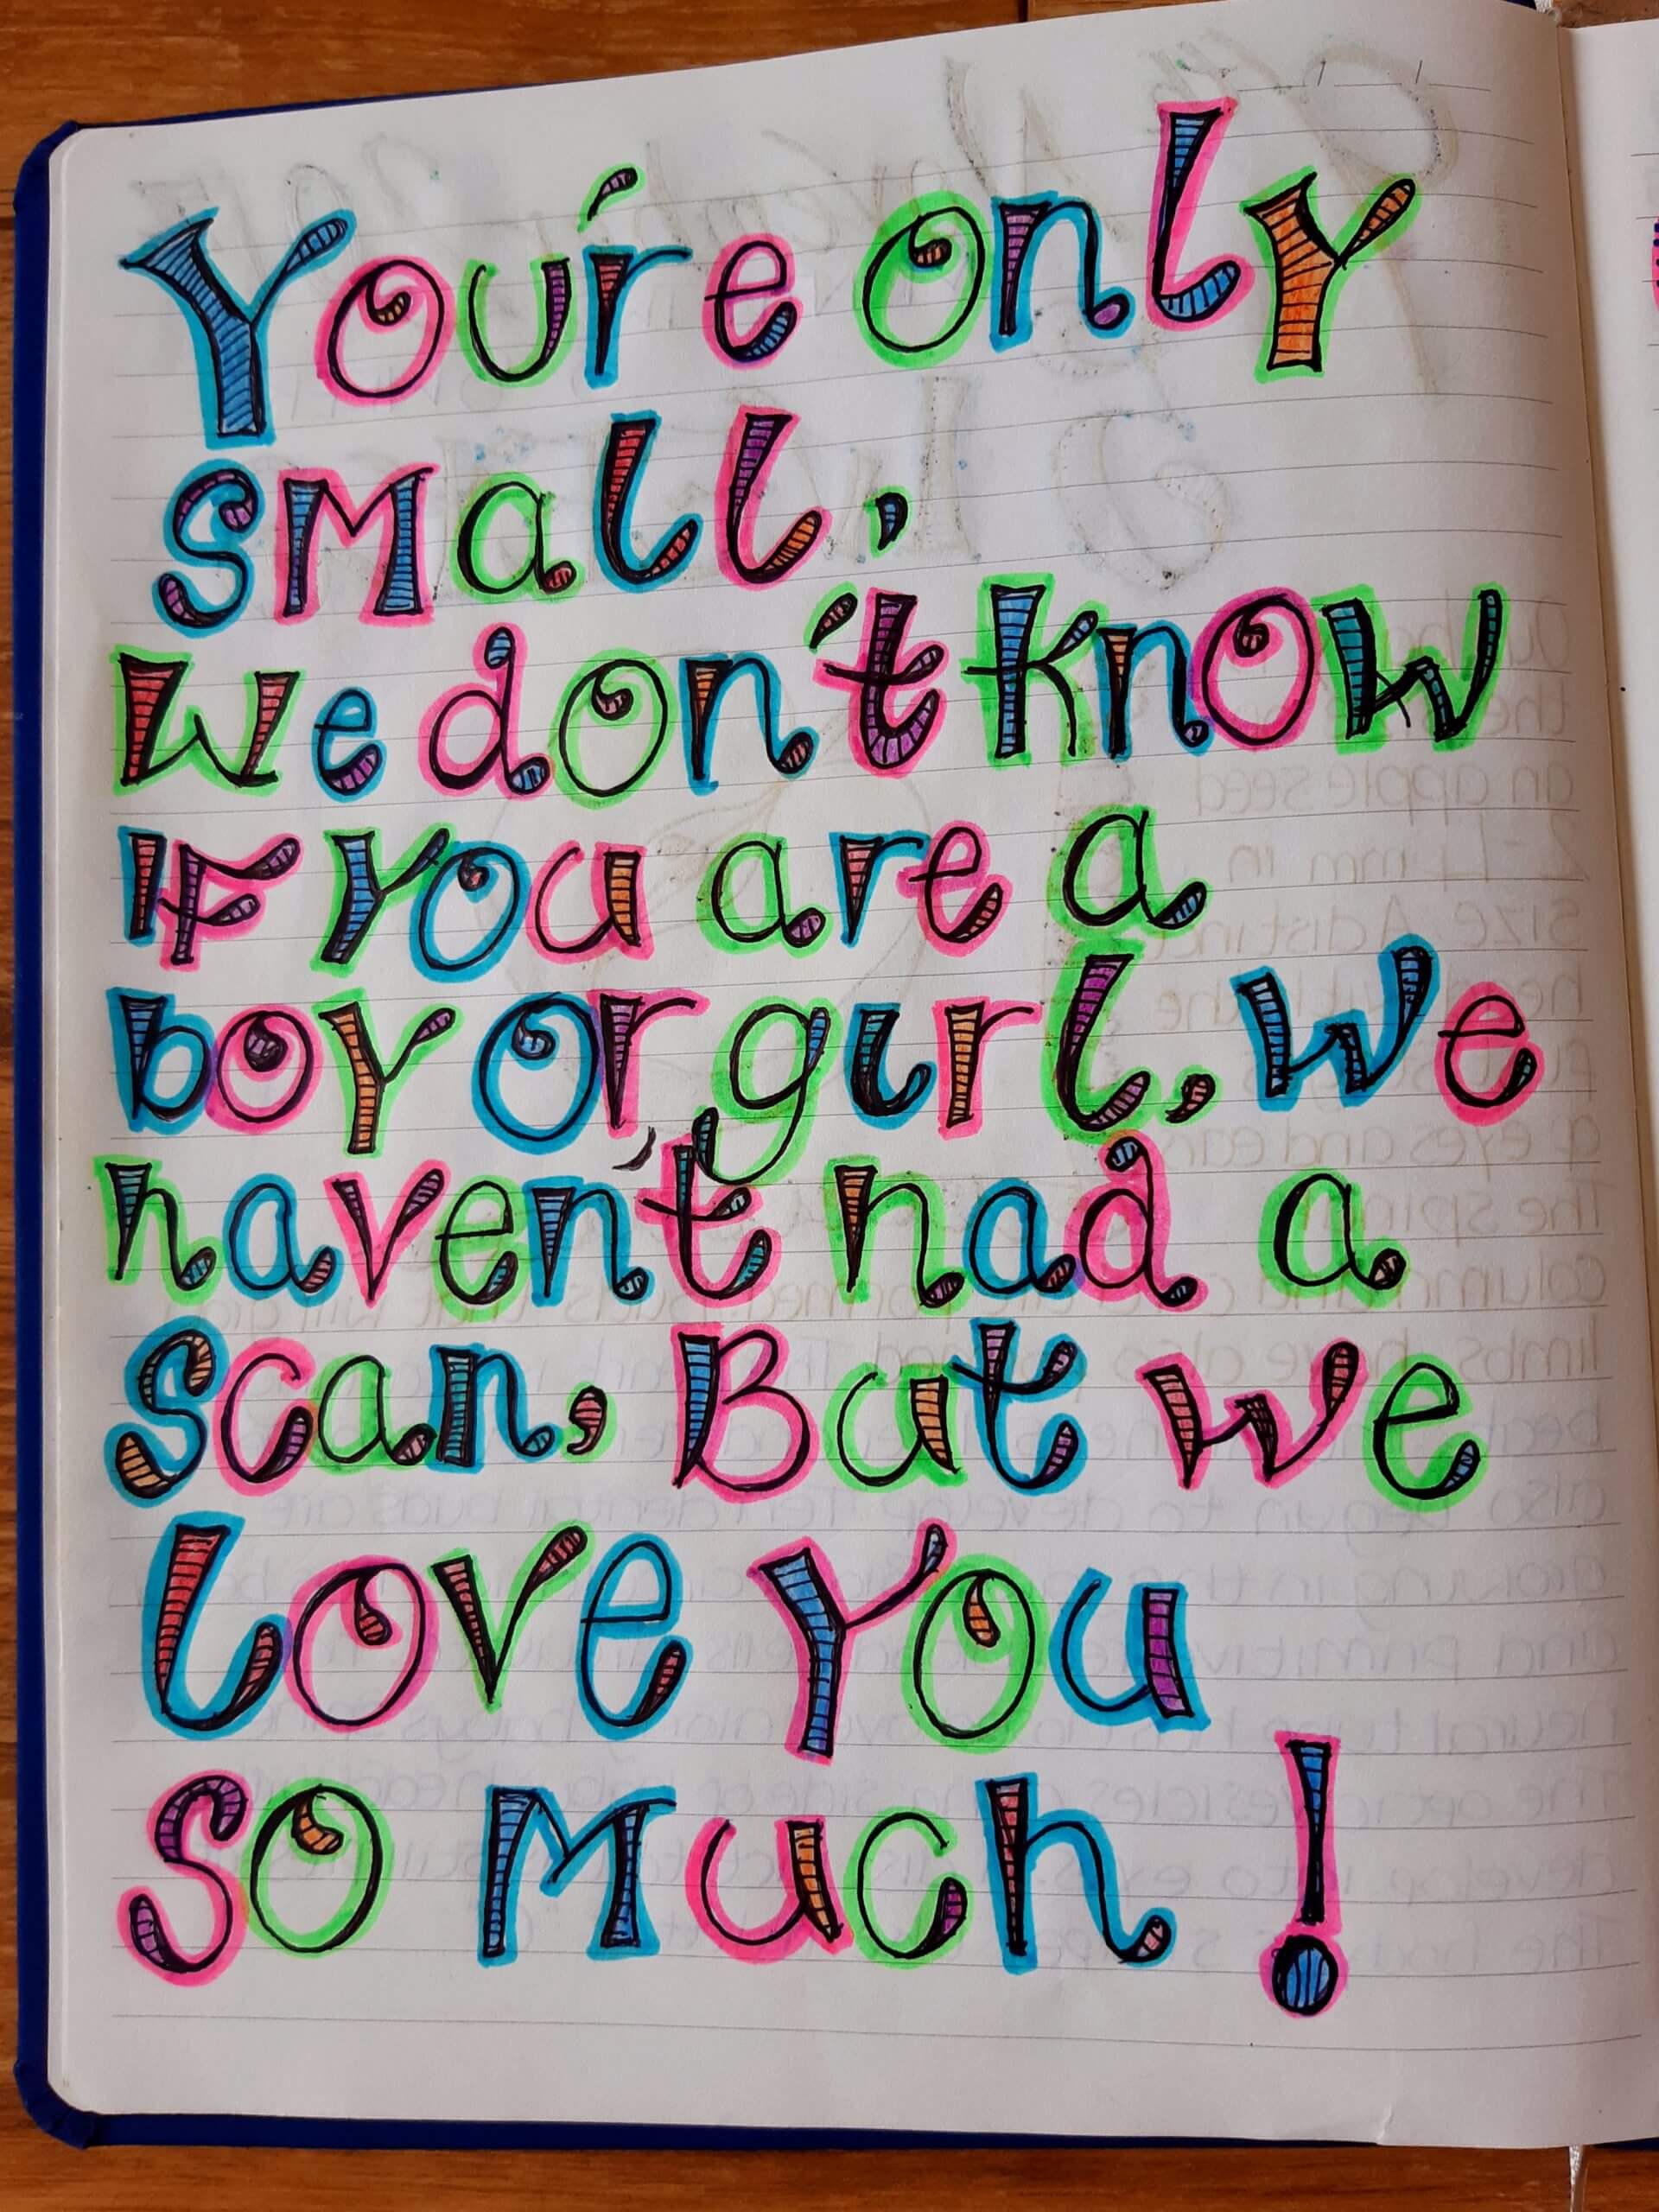 You're only
small,
We don't know
IF You are a
boy or girl, we
haven't had a
scan, But we
love you
so much!